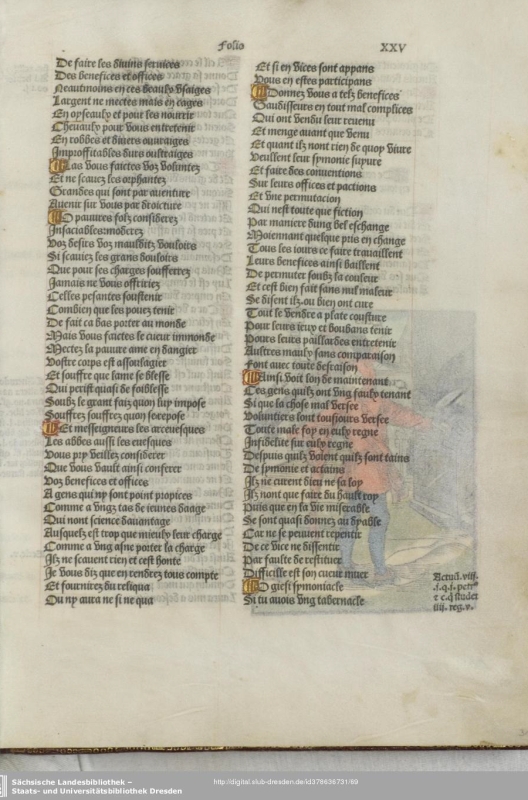 Folio XXV
De faire les diuins seruices
Des benefices et offices
Neautmoins en ces beaulx vsaiges
Largent ne mectes mais en cages
En oyseaulx et pour les nourrir
Cheuaulx pour vous entretenir
En robbes et diuers ouuraiges
Improffitables durs oultraiges
Las vous faictes voz voluntez
Et ne scauez les orphantez
Grandes qui sont par auenture
Auenir sur vous par droicture
O pauures folz considerez
Insaciables: moderez
Voz desirs voz maulditz vouloirs
Si scauiez les grans douloirs
Que pour ses charges soufferrez
Jamais ne vous offririez
Celles pesantes soustenir
Combien que les pouez tenir
De fait ca bas porter au monde
Mais vous faictes le cueur immonde
Mectez la pauure ame en dangier
Vostre corps est assoulagier
Et souffre que lame se blesse
Qui perist quasi de foiblesse
Soubz le grant faiz quon luy impose
Souffrez souffrez quon se repose
Et messeigneurs les arceuesques
Les abbes aussi les euesques
Vous pry veillez considerer
Que vous vault ainsi conferer
Voz benefices et offices
A gens qui ny sont point propices
Comme a vngz tas de ieunes daage
Qui nont science dauantage
Ausquelz est trop que mieulx leur charge
Comme a vng asne porter la charge
Ilz ne scauent rien et cest honte
Je vous diz que en rendrez tous compte
Et fournirez du reliqua
Ou ny aura ne si ne qua
Et si en vices sont appans
Vous en estes participans
Donnez vous a telz benefices
Gaudisseurs en tout mal complices
Qui ont vendu leur reuenu
Et menge auant que venu
Et quant ilz nont rien de quoy viure
Veullent leur symonie suyure
Et faire des conuentions
Sur leurs offices et pactions
Et vne permutacion
Qui nest toute que fiction
Par maniere dung bel eschange
Moiennant quelque pris en change
Tous les iours ce faire trauaillent
Leurs benefices ainsi baillent
De permuter soubz la couleur
Et cest bien fait sans nul maleur
Se disent ilz. ou bien ont cure
Tout le vendre a plate cousture
Pour leurs ieux et boubans tenir
Pour leurs paillardes entretenir
Aultres maulx sans comparaison
Font auec toute desraison
Ainsi voit lon de maintenant
Ces gens quilz ont vng faulx tenant
Si que la chose mal versee
Voluntiers sont tousiours versee
Toute male foy en eulx regne
Infidelite sur eulx regne
Despuis quilz voient quilz sont tains
De symonie et actains
Ilz ne curent dieu ne sa loy
Ilz nont que faire du hault roy
Puis que en la vie miserable
Se sont quasi donnez au dyable
Car ne se peuuent repentir
De ce vice ne dissentir
Par faulte de restituer
Difficille est son cueur muer
O giesi symoniacle
Si tu auois vng tabernacle
Actuu. viii.
.i.q.i. petr9
iiii. reg. v.
Sächsische Landesbibliothek –
Staats- und Universitätsbibliothek Dresden
http://digital.slub-dresden.de/id378636731/69